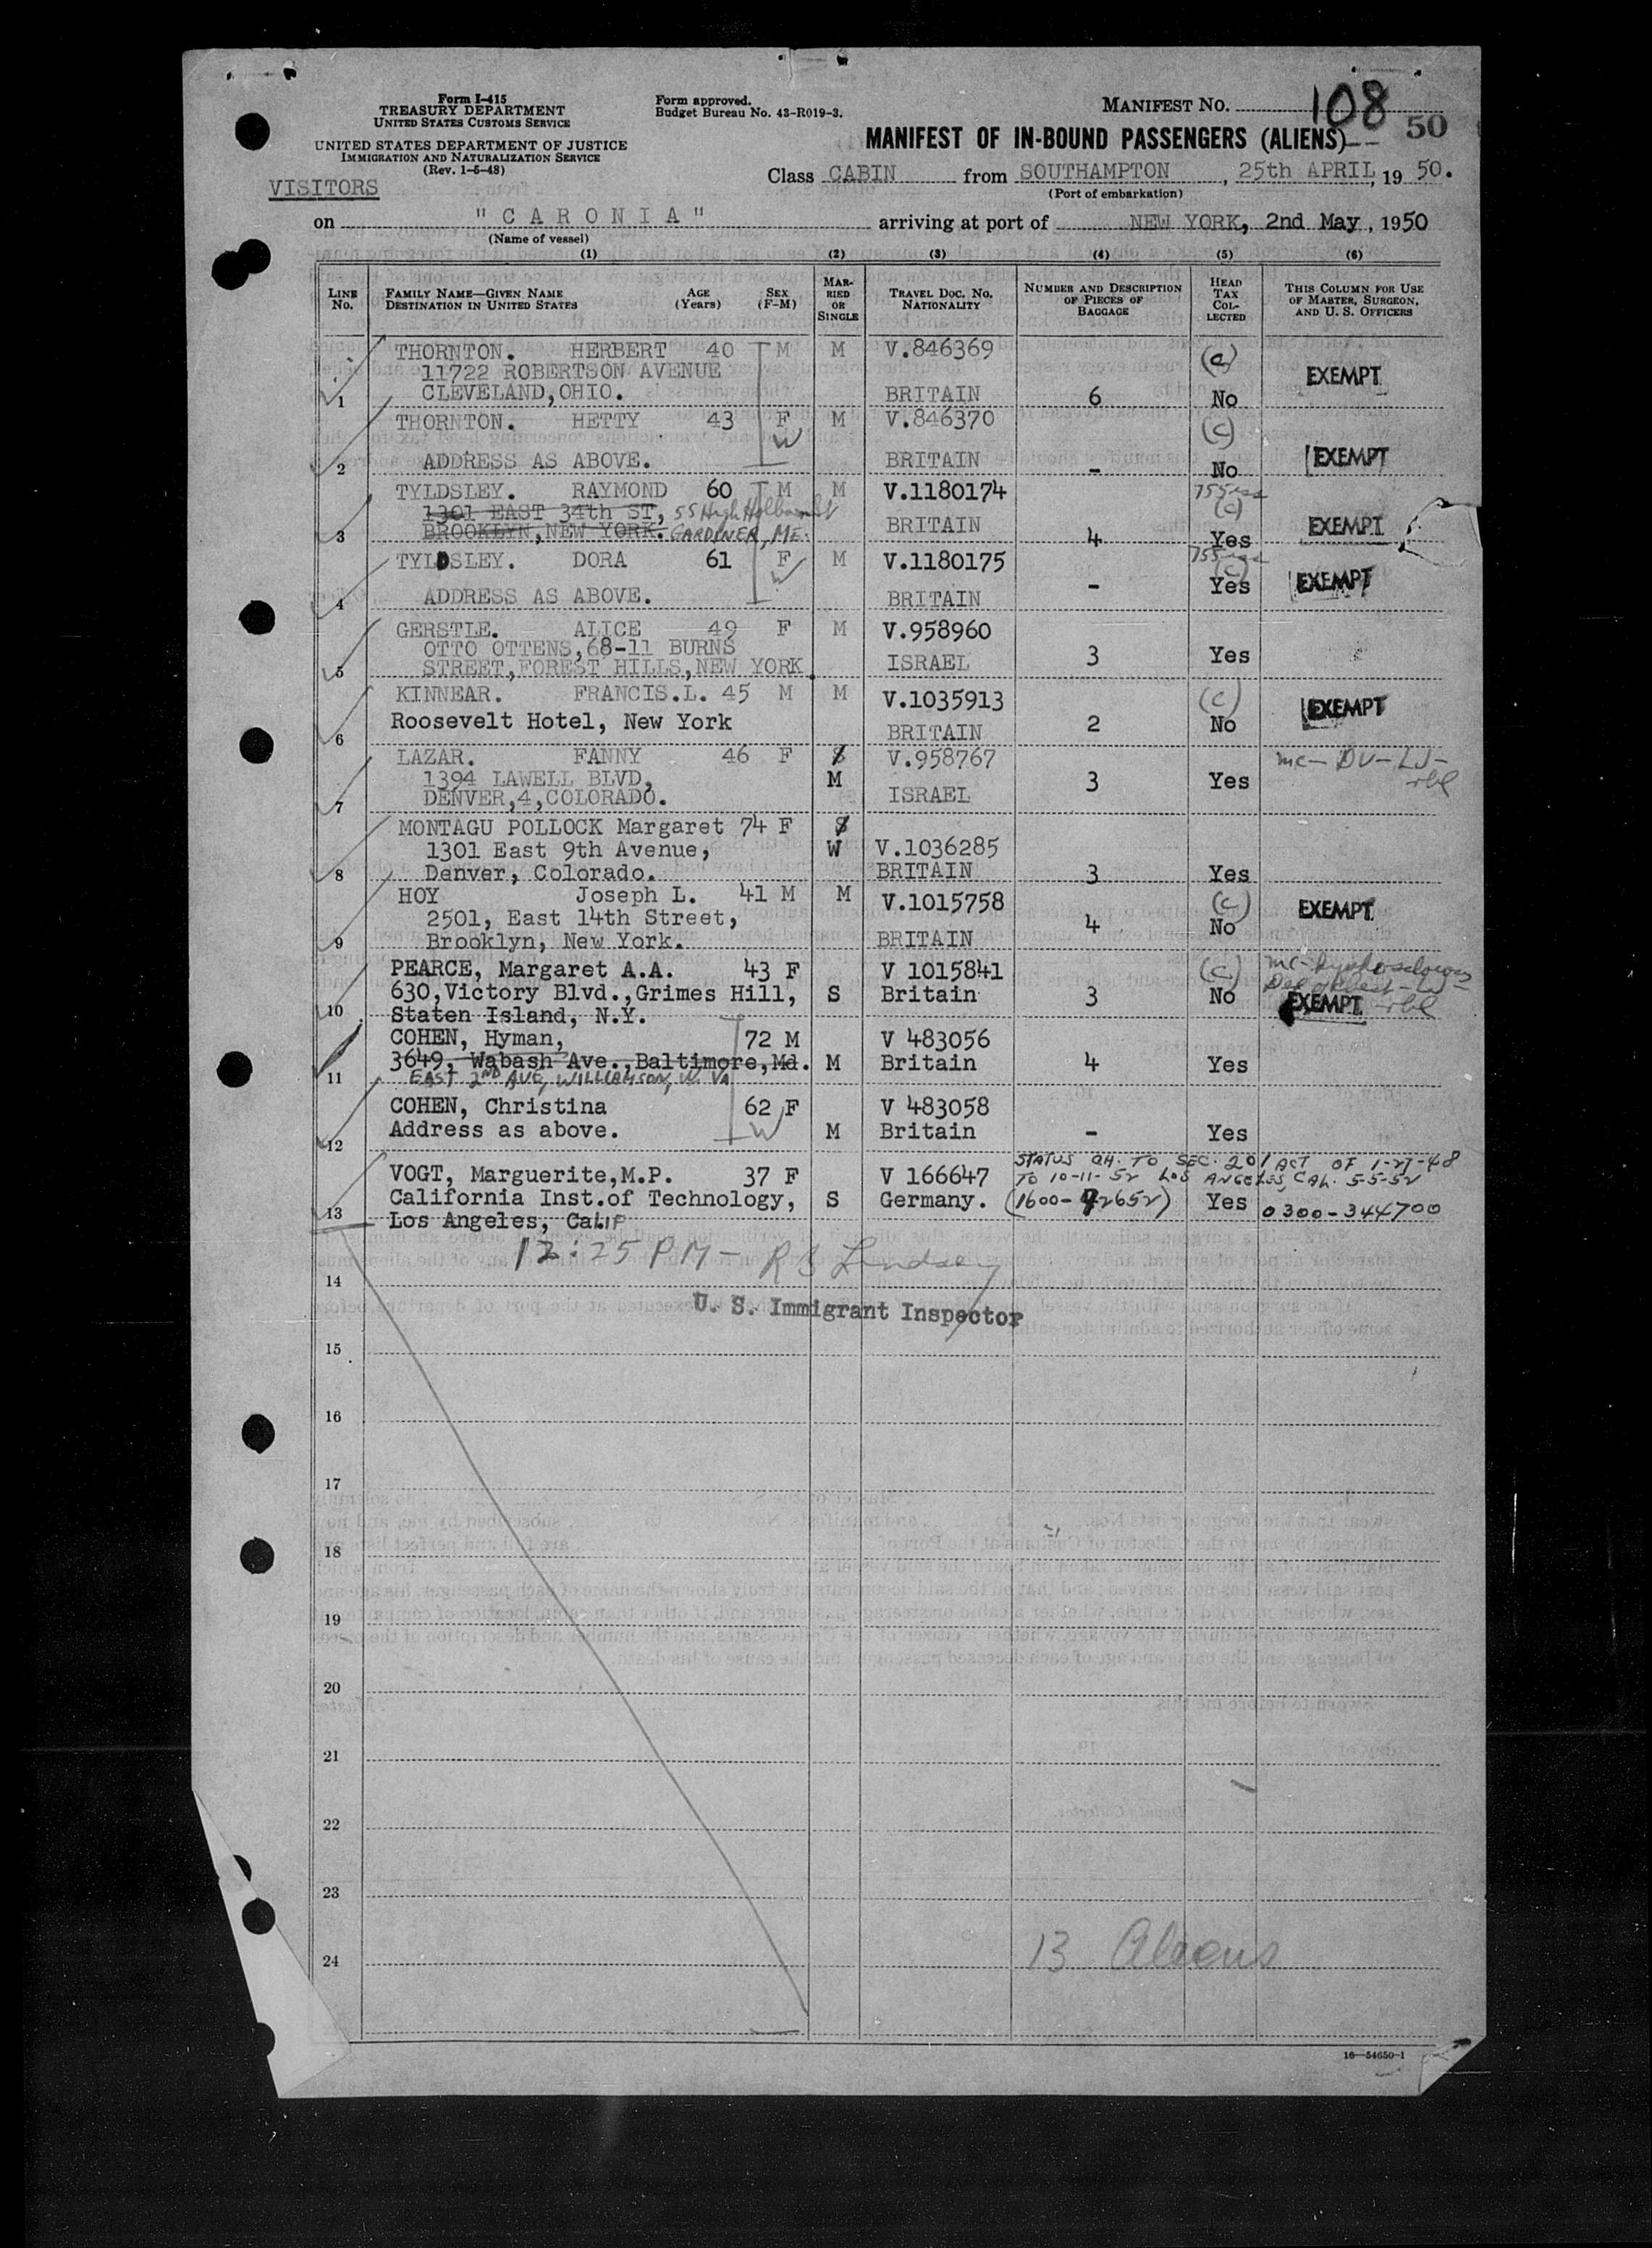 Form I-415
TREASURY DEPARTMENT
UNITED STATES CUSTOMS SERVICE
UNITED STATES DEPARTMENT OF JUSTICE
IMMIGRATION AND NATURALIZATION SERVICE
(Rev. 1-5-48)
VISITORS
Form approved.
Budget Bureau No. 43-R019-3.
MANIFEST NO. 108
50
MANIFEST OF IN-BOUND PASSENGERS (ALIENS)
Class CABIN from SOUTHAMPTON, 25th APRIL, 19 50.
(Port of embarkation)
on "CARONIA" arriving at port of NEW YORK, 2nd May, 1950
(Name of vessel)
(1) (2) (3) (4) (5) (6)
LINE No. FAMILY NAME—GIVEN NAME DESTINATION IN UNITED STATES AGE (Years) SEX (F-M) MARRIED OR SINGLE TRAVEL DOC. NO. NATIONALITY NUMBER AND DESCRIPTION OF PIECES OF BAGGAGE HEAD TAX COLLECTED THIS COLUMN FOR USE OF MASTER, SURGEON, AND U. S. OFFICERS
THORNTON. HERBERT 40 M M V.846369 (c)
11722 ROBERTSON AVENUE EXEMPT
1 CLEVELAND, OHIO. BRITAIN 6 No
THORNTON. HETTY 43 F M V.846370 (c)
W
2 ADDRESS AS ABOVE. BRITAIN - No EXEMPT
TYLDSLEY. RAYMOND 60 M M V.1180174 (c)
1301 EAST 34th ST, 55 High Holborn St BRITAIN EXEMPT
3 BROOKLYN, NEW YORK. GARDINER, ME. 4 Yes
TYLDSLEY. DORA 61 F M V.1180175 (c)
W
4 ADDRESS AS ABOVE. BRITAIN - Yes EXEMPT
GERSTLE. ALICE 49 F M V.958960
OTTO OTTENS, 68-11 BURNS
5 STREET, FOREST HILLS, NEW YORK. ISRAEL 3 Yes
KINNEAR. FRANCIS.L. 45 M M V.1035913 (c)
Roosevelt Hotel, New York EXEMPT
6 BRITAIN 2 No
LAZAR. FANNY 46 F S V.958767 mc- DV-LJ-
1394 LAWELL BLVD, M
7 DENVER, 4, COLORADO. ISRAEL 3 Yes
MONTAGU POLLOCK Margaret 74 F S
1301 East 9th Avenue, W V.1036285
8 Denver, Colorado. BRITAIN 3 Yes
HOY Joseph L. 41 M M V.1015758 (c)
2501, East 14th Street, EXEMPT
9 Brooklyn, New York. BRITAIN 4 No
PEARCE, Margaret A.A. 43 F V 1015841 (c)
630, Victory Blvd., Grimes Hill, S Britain 3 No
10 Staten Island, N.Y. EXEMPT
COHEN, Hyman, 72 M V 483056
3649, Wabash Ave., Baltimore, Md. M Britain 4 Yes
11 EAST 2ND AVE, WILLIAMSON, W. VA
COHEN, Christina 62 F V 483058
W
12 Address as above. M Britain - Yes
STATUS CH. TO SEC. 201 ACT OF 1-27-48
VOGT, Marguerite, M.P. 37 F V 166647 TO 10-11-52 LOS ANGELES, CAL. 5-5-52
California Inst. of Technology, S Germany. (1600-42652) Yes 0300-344700
13 Los Angeles, Calif
12:25 PM - R B Lindsey
14
U. S. Immigrant Inspector
15
16
17
18
19
20
21
22
23
24
13 Aliens
16—54650-1